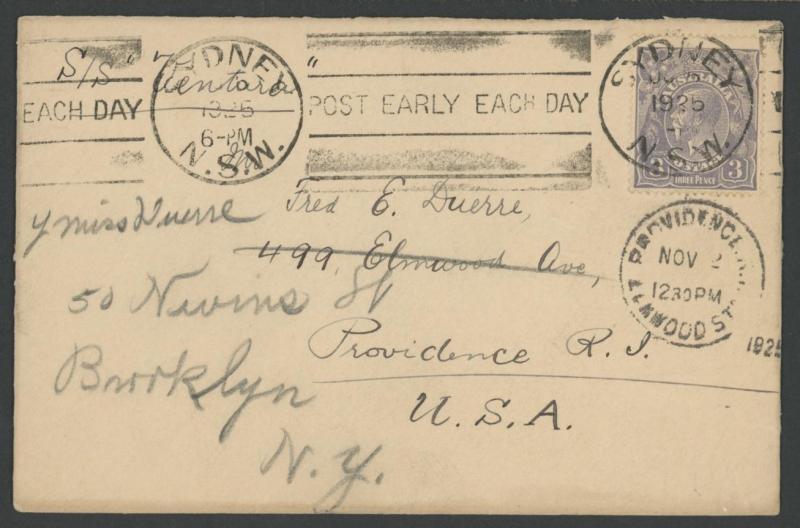 S/S "Ventara"
SYDNEY
1925
6-PM
N.S.W.
EACH DAY
POST EARLY EACH DAY
SYDNEY
1925
N.S.W.
AUSTRALIA
3 3
THREE PENCE
y miss Duerre
Fred E. Duerre,
499, Elmwood Ave,
50 Nevins St
Providence R. I.
Brooklyn
U. S. A.
N.Y.
PROVIDENCE, R.I.
NOV 2
1230 PM
ELMWOOD STA.
1925